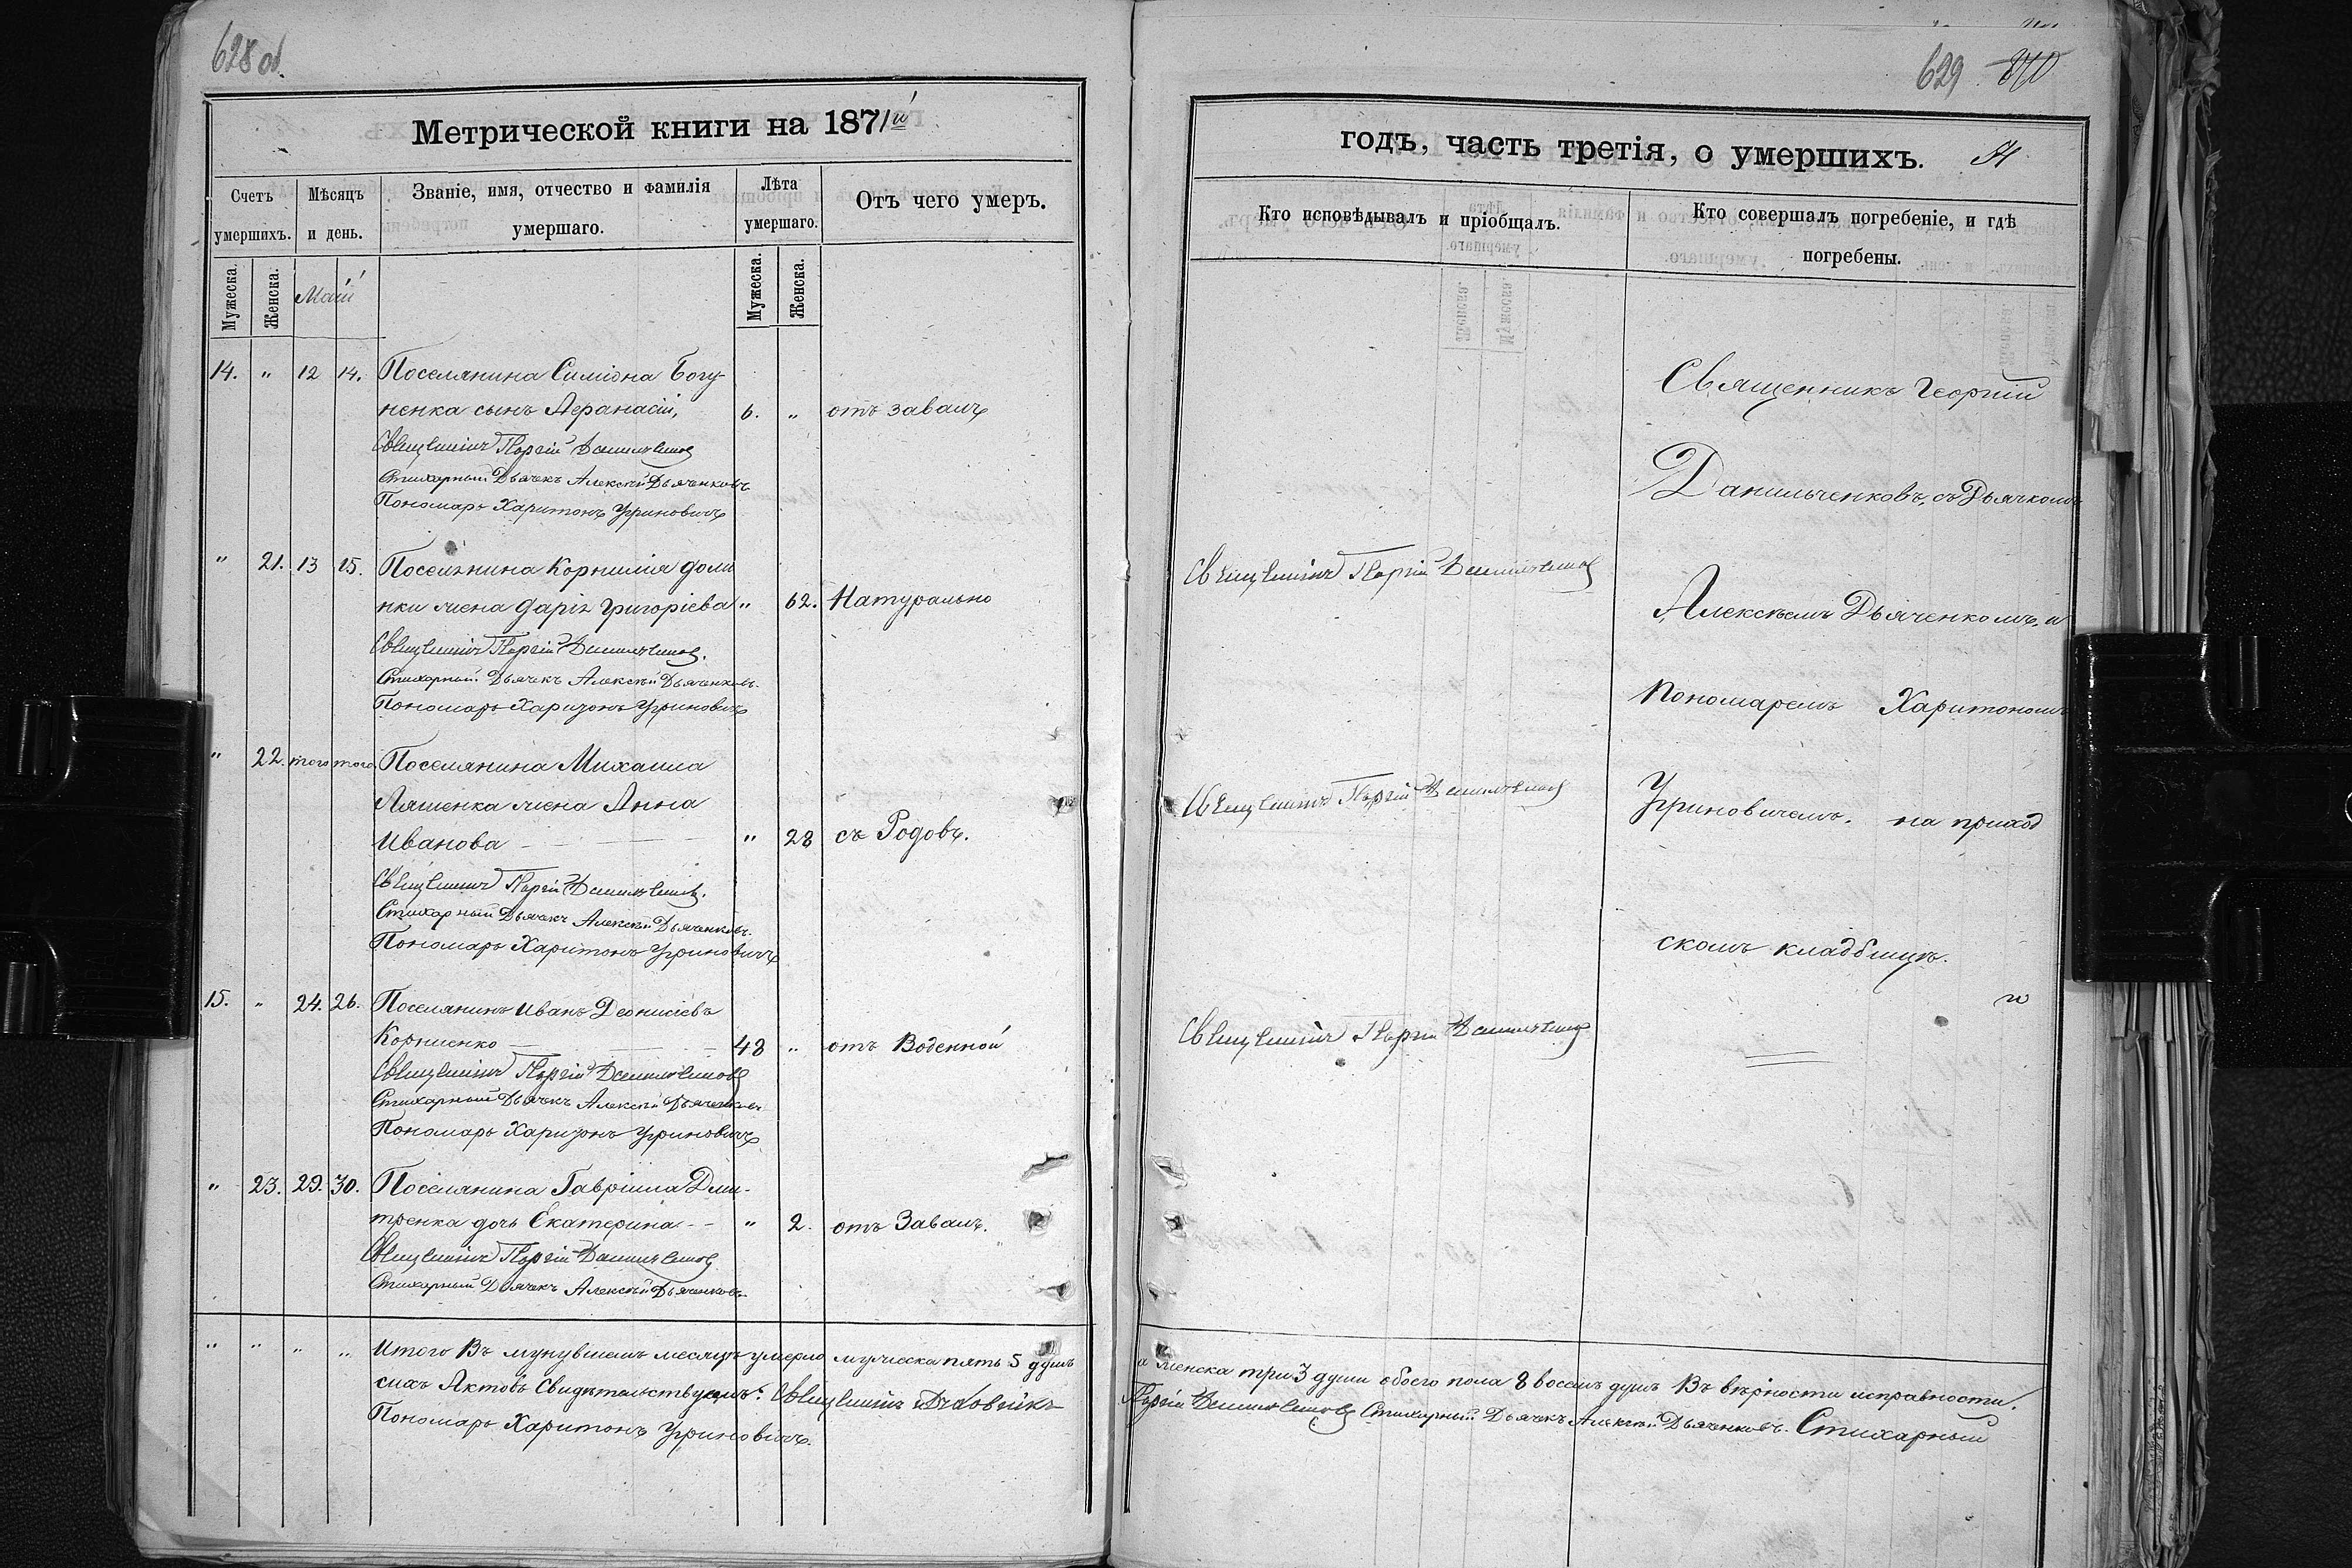 628 об.
Метрической книги на 1871й
Счетъ умершихъ.
Мѣсяцъ и день.
Званіе, имя, отчество и фамилія умершаго.
Лѣта умершаго.
Отъ чего умеръ.
Мужеска.
Женска.
Май
Мужеска.
Женска.
14. " 12 14. Поселянина Симіона Богу-
ненка сынъ Афанасій, 6. " отъ завалъ
Священникъ Георгій Данильченковъ
Стихарный Дьячекъ Алексѣй Дьяченковъ
Пономарь Харитонъ Угриновичъ
" 21. 13 15. Поселянина Корнилія Доли
нки жена Дарія Григоріева " 62. Натурально
Священникъ Георгій Данильченковъ.
Стихарный Дьячекъ Алексѣй Дьяченковъ.
Пономарь Харитонъ Угриновичъ
" 22. того того Поселянина Михаила
Ляшенка жена Анна
Иванова " 28 съ Родовъ.
Священникъ Георгій Данильченковъ.
Стихарный Дьячекъ Алексѣй Дьяченковъ.
Пономарь Харитонъ Угриновичъ
15. " 24. 26. Поселянинъ Иванъ Деонисіевъ
Корниенко 48 " отъ Воденной
Священникъ Георгій Данильченковъ
Стихарный Дьячекъ Алексѣй Дьяченковъ
Пономарь Харитонъ Угриновичъ
" 23. 29. 30. Поселянина Гавріила Дми-
тренка дочь Екатерина " 2. отъ Завалъ.
Священникъ Георгій Данильченковъ
Стихарный Дьячекъ Алексѣй Дьяченковъ.
" " " " Итого Въ мунувшемъ месяцѣ умерло мужеска пять 5 душъ
сихъ Актовъ Свидѣтельствуемъ: Священникъ
Пономарь Харитонъ Угриновичъ.
629 840
годъ, часть третія, о умершихъ.
Кто исповѣдывалъ и пріобщалъ.
Кто совершалъ погребеніе, и гдѣ погребены.
Священникъ Георгій
Данильченковъ, съ Дьячкомъ
Священникъ Георгій Данильченковъ
Алексѣемъ Дьяченкомъ, и
Пономаремъ Харитономъ
Священникъ Георгій Данильченковъ
Угриновичемъ. на приход
скомъ кладбищѣ.
Священникъ Георгій Данильченковъ
а женска три 3 души обоего пола 8 восемь душъ Въ вѣрности исправности.
Георгій Данильченковъ Стихарный Дьячекъ Алексѣй Дьяченковъ. Стихарный